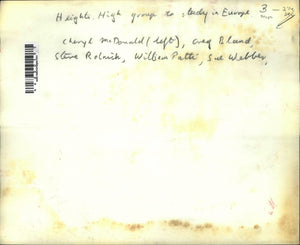 Heights. High group to study in Europe.
Cheryl McDonald (left), Greg Bland
Steve Rolnick, William Patte, Sue Webber,